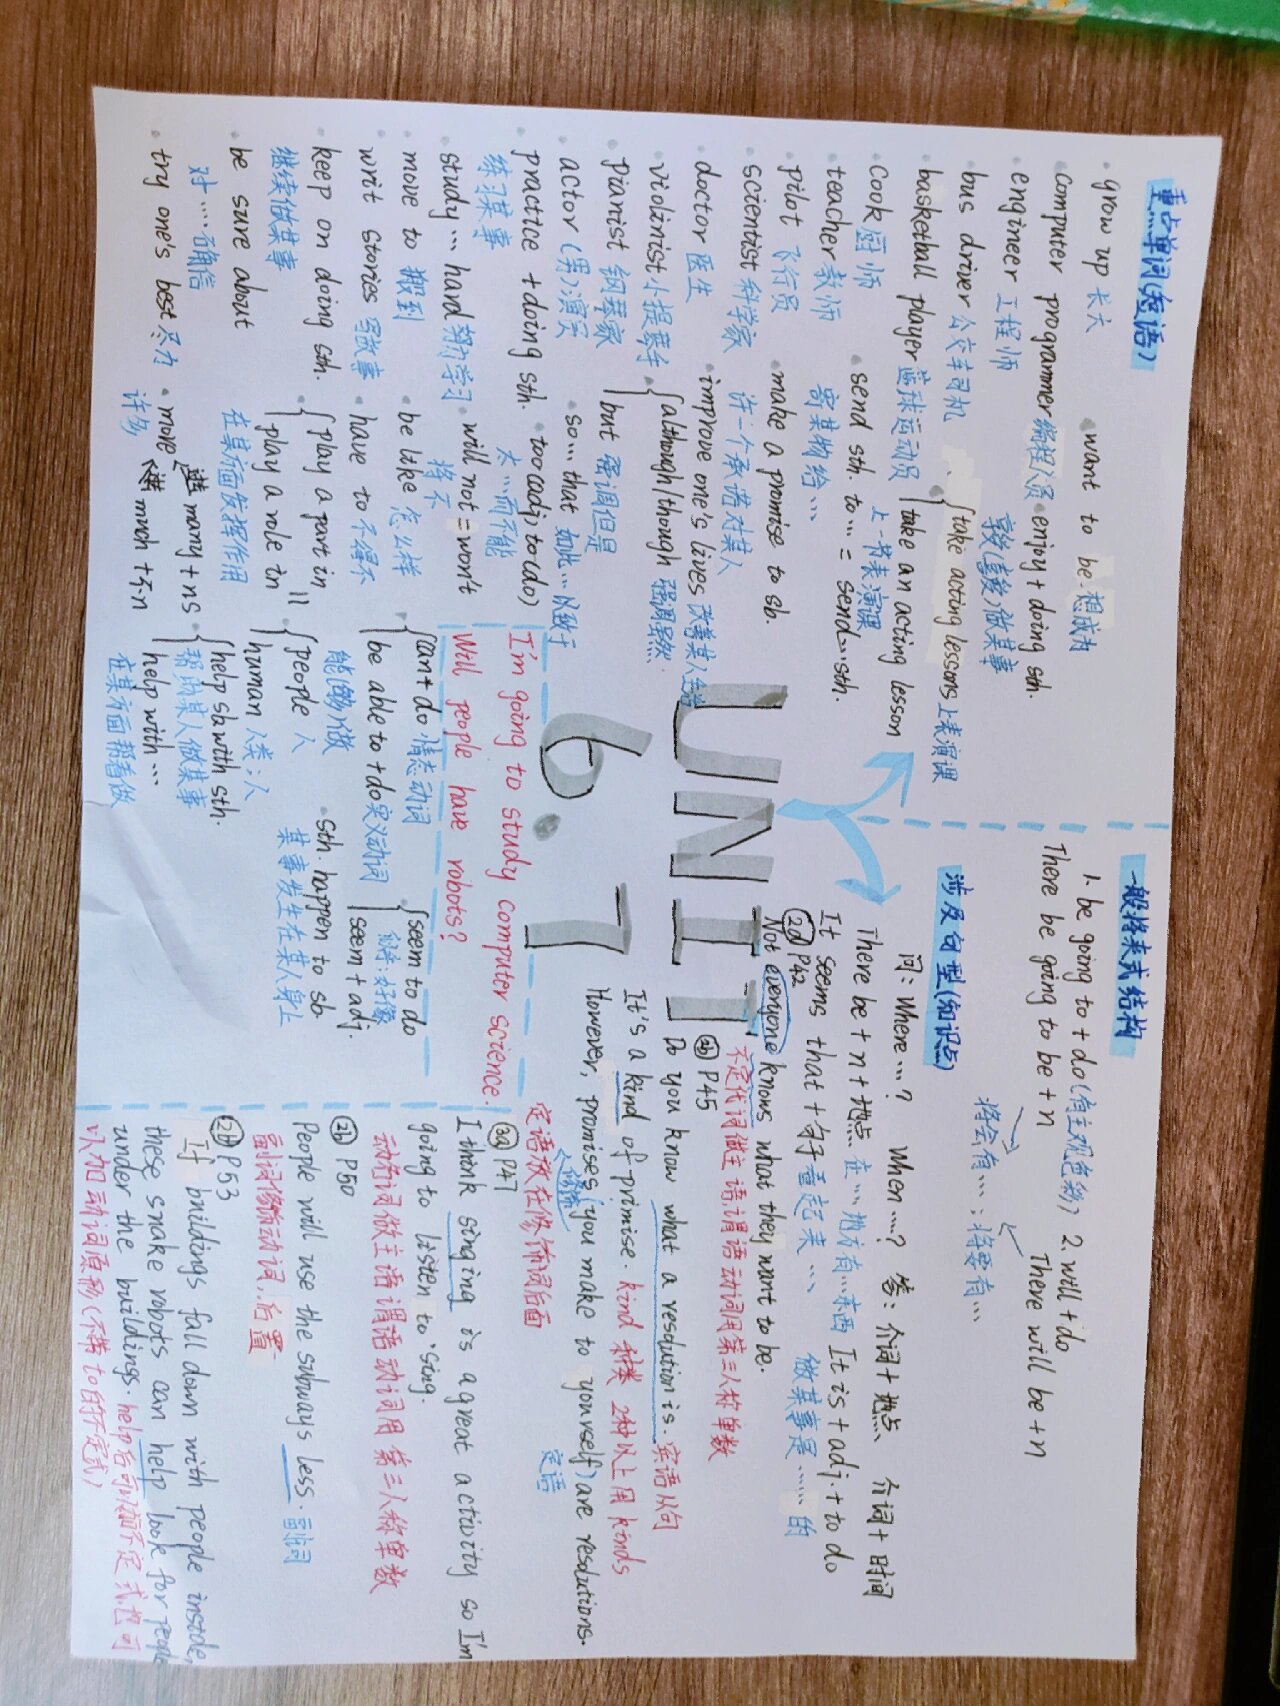 重点单词(短语)
grow up 长大
computer programmer 编程人员
engineer 工程师
bus driver 公交车司机
basketball player 篮球运动员
cook 厨师
teacher 教师
pilot 飞行员
scientist 科学家
doctor 医生
violinist 小提琴手
pianist 钢琴家
actor (男)演员
practice + doing sth.
练习某事
study... hard 努力学习
move to 搬到
writ stories 写故事
keep on doing sth.
继续做某事
be sure about
对...确信
try one's best 尽力
want to be 想成为
enjoy + doing sth.
享受(喜爱)做某事
take acting lessons 上表演课
take an acting lesson
上一节表演课
send sth. to... = send...sth.
寄某物给...
make a promise to sb.
许一个承诺对某人
improve one's lives 改善某人生活
although/though 强调虽然
but 强调但是
so... that 如此...以致于
too(adj) to(do)
太...而不能
will not = won't
将不
be like 怎么样
have to 不得不
play a part in
play a role in
在某方面发挥作用
more
many + ns
much + 不·n
许多
can + do 情态动词
be able to + do 实义动词
能(够)做
people 人
human 人类;人
help sb with sth.
帮助某人做某事
help with...
在某方面帮着做
seem to do
seem + adj.
好像
sth. happen to sb.
某事发生在某人身上
UNIT
6. 7
I'm going to study computer science.
Will people have robots?
一般将来式结构
1. be going to + do (有主观色彩) 2. will + do
There be going to be + n There will be + n
将会有...;将要有...
涉及句型(知识点)
问: Where...? When...? 答: 介词+地点、介词+时间
There be + n + 地点 在...地方有...东西 It is + adj. + to do
做某事是......的
It seems that + 句子 看起来...
2d P42
Not everyone knows what they want to be.
不定代词做主语,谓语动词用第三人称单数
2b P45
Do you know what a resolution is. 宾语从句
It's a kind of primise. kind 种类 2种以上用 kinds
However, promises (you make to yourself) are resolutions.
修饰 定语
定语放在修饰词后面
3a P47
I think singing is a great activity so I'm
going to listen to sing.
动名词做主语谓语动词用第三人称单数
2b P50
People will use the subways less. 副词
副词修饰动词,后置
2b P53
If buildings fall down with people inside,
these snake robots can help look for people
under the buildings. help后可以加不定式也可
以加动词原形(不带to的不定式)